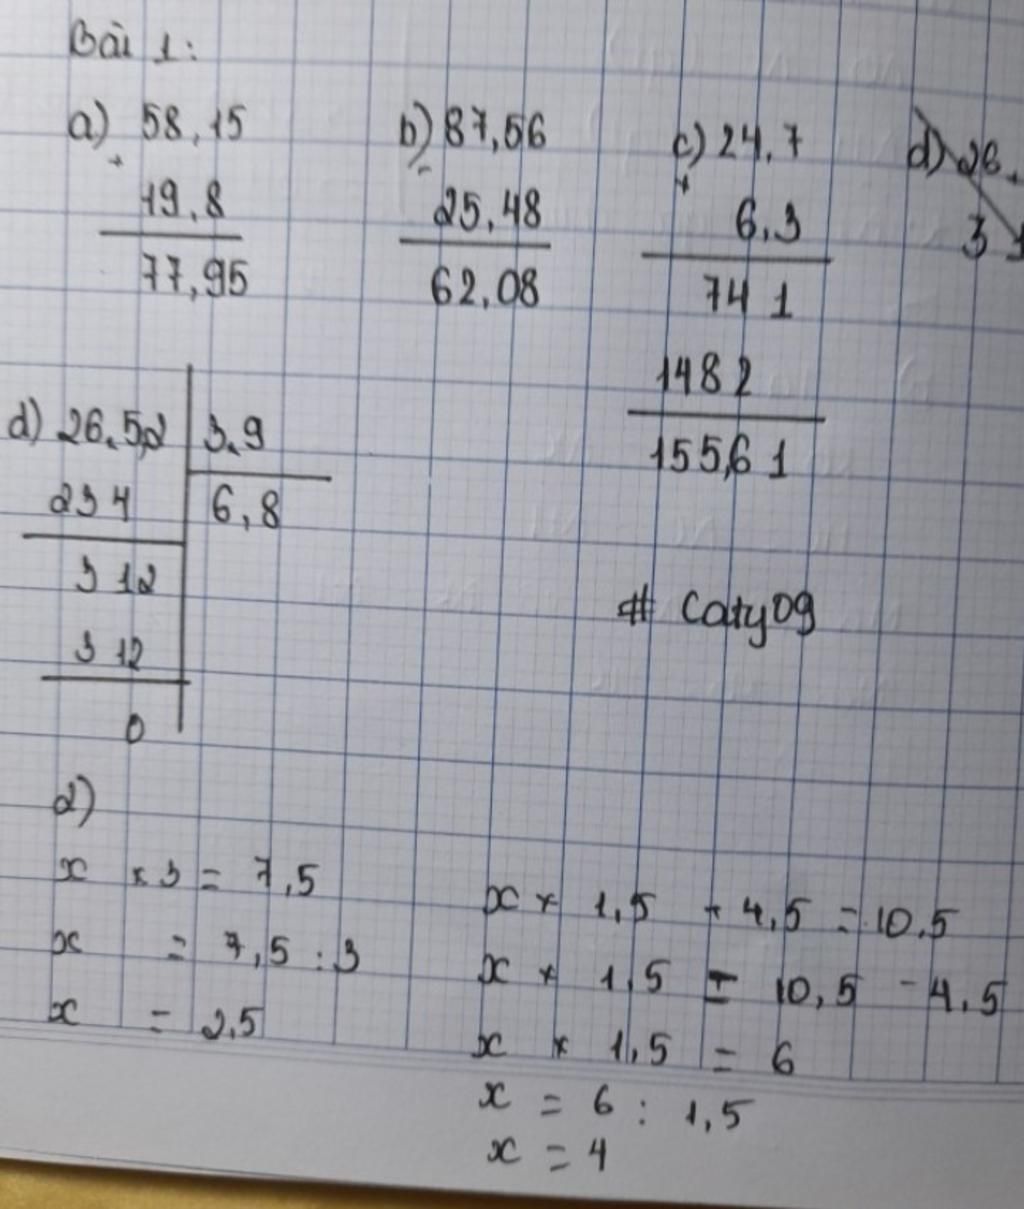 Bài 1:
a) 58,15
+
19,8
77,95
b) 87,56
-
25,48
62,08
c) 24,7
×
6,3
74 1
148 2
155,6 1
d) 26,
3
d) 26,5,2 3,9
23 4 6,8
3 12
3 12
0
# Caty09
2)
x × 3 = 7,5
x = 7,5 : 3
x = 2,5
x × 1,5 + 4,5 = 10,5
x × 1,5 = 10,5 - 4,5
x × 1,5 = 6
x = 6 : 1,5
x = 4